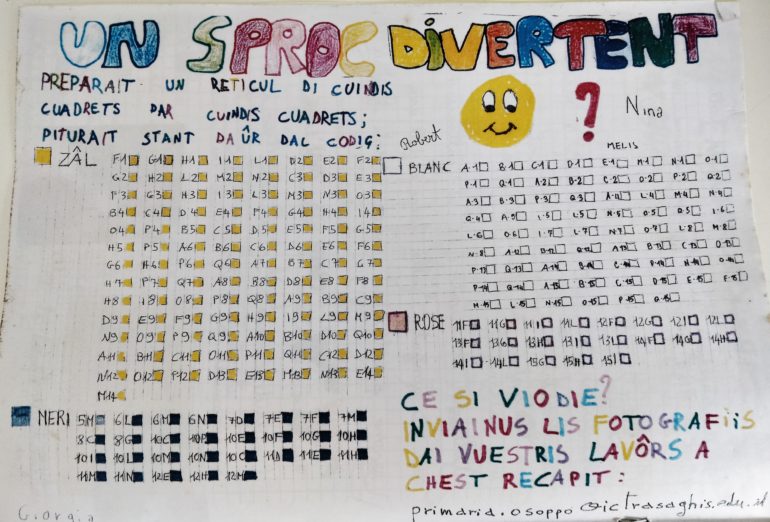 UN SPROC DIVERTENT
PREPARAIT UN RETICUL DI CUINDIS
CUADRETS PAR CUINDIS CUADRETS;
PITURAIT STANT DAÛR DAL CODIÇ:
?
Nina
Robert
ZÂL F1 G1 H1 I1 L1 D2 E2 F2
G2 H2 L2 M2 N2 C3 D3 E3
F3 G3 H3 I3 L3 M3 N3 O3
B4 C4 D4 E4 F4 G4 H4 I4
O4 P4 B5 C5 D5 E5 F5 G5
H5 P5 A6 B6 C6 D6 E6 F6
G6 H6 P6 Q6 A7 B7 C7 G7
H7 P7 Q7 A8 B8 D8 E8 F8
H8 I8 O8 P8 Q8 A9 B9 C9
D9 E9 F9 G9 H9 I9 L9 M9
N9 O9 P9 Q9 A10 B10 D10 Q10
A11 B11 C11 O11 P11 Q11 C12 D12
N12 O12 P12 D13 E13 M13 N13 E14
M14
MELIS
BLANC A-1 B-1 C-1 D-1 E-1 M-1 N-1 O-1
P-1 Q-1 A-2 B-2 C-2 O-2 P-2 Q-2
A-3 B-3 P-3 Q-3 A-4 L-4 M-4 N-4
Q-4 A-5 I-5 L-5 N-5 O-5 Q-5 I-6
L-6 O-6 I-7 L-7 N-7 O-7 L-8 M-8
N-8
ROSE 11F 11G 11I 11L 12F 12G 12I 12L
13F 13G 13H 13I 13L 14F 14G 14H
14I 14L 15G 15H 15I
NERI 5M 6L 6M 6N 7D 7E 7F 7M
8C 8G 10C 10P 10E 10F 10G 10H
10I 10L 10M 10N 11D 11E 11H
11M 11N 12E 12H 12M
CE SI VIODIE?
INVIAINUS LIS FOTOGRAFIIS
DAI VUESTRIS LAVÔRS A
CHEST RECAPIT:
primaria.osoppo@ictrasaghis.edu.it
Giorgia